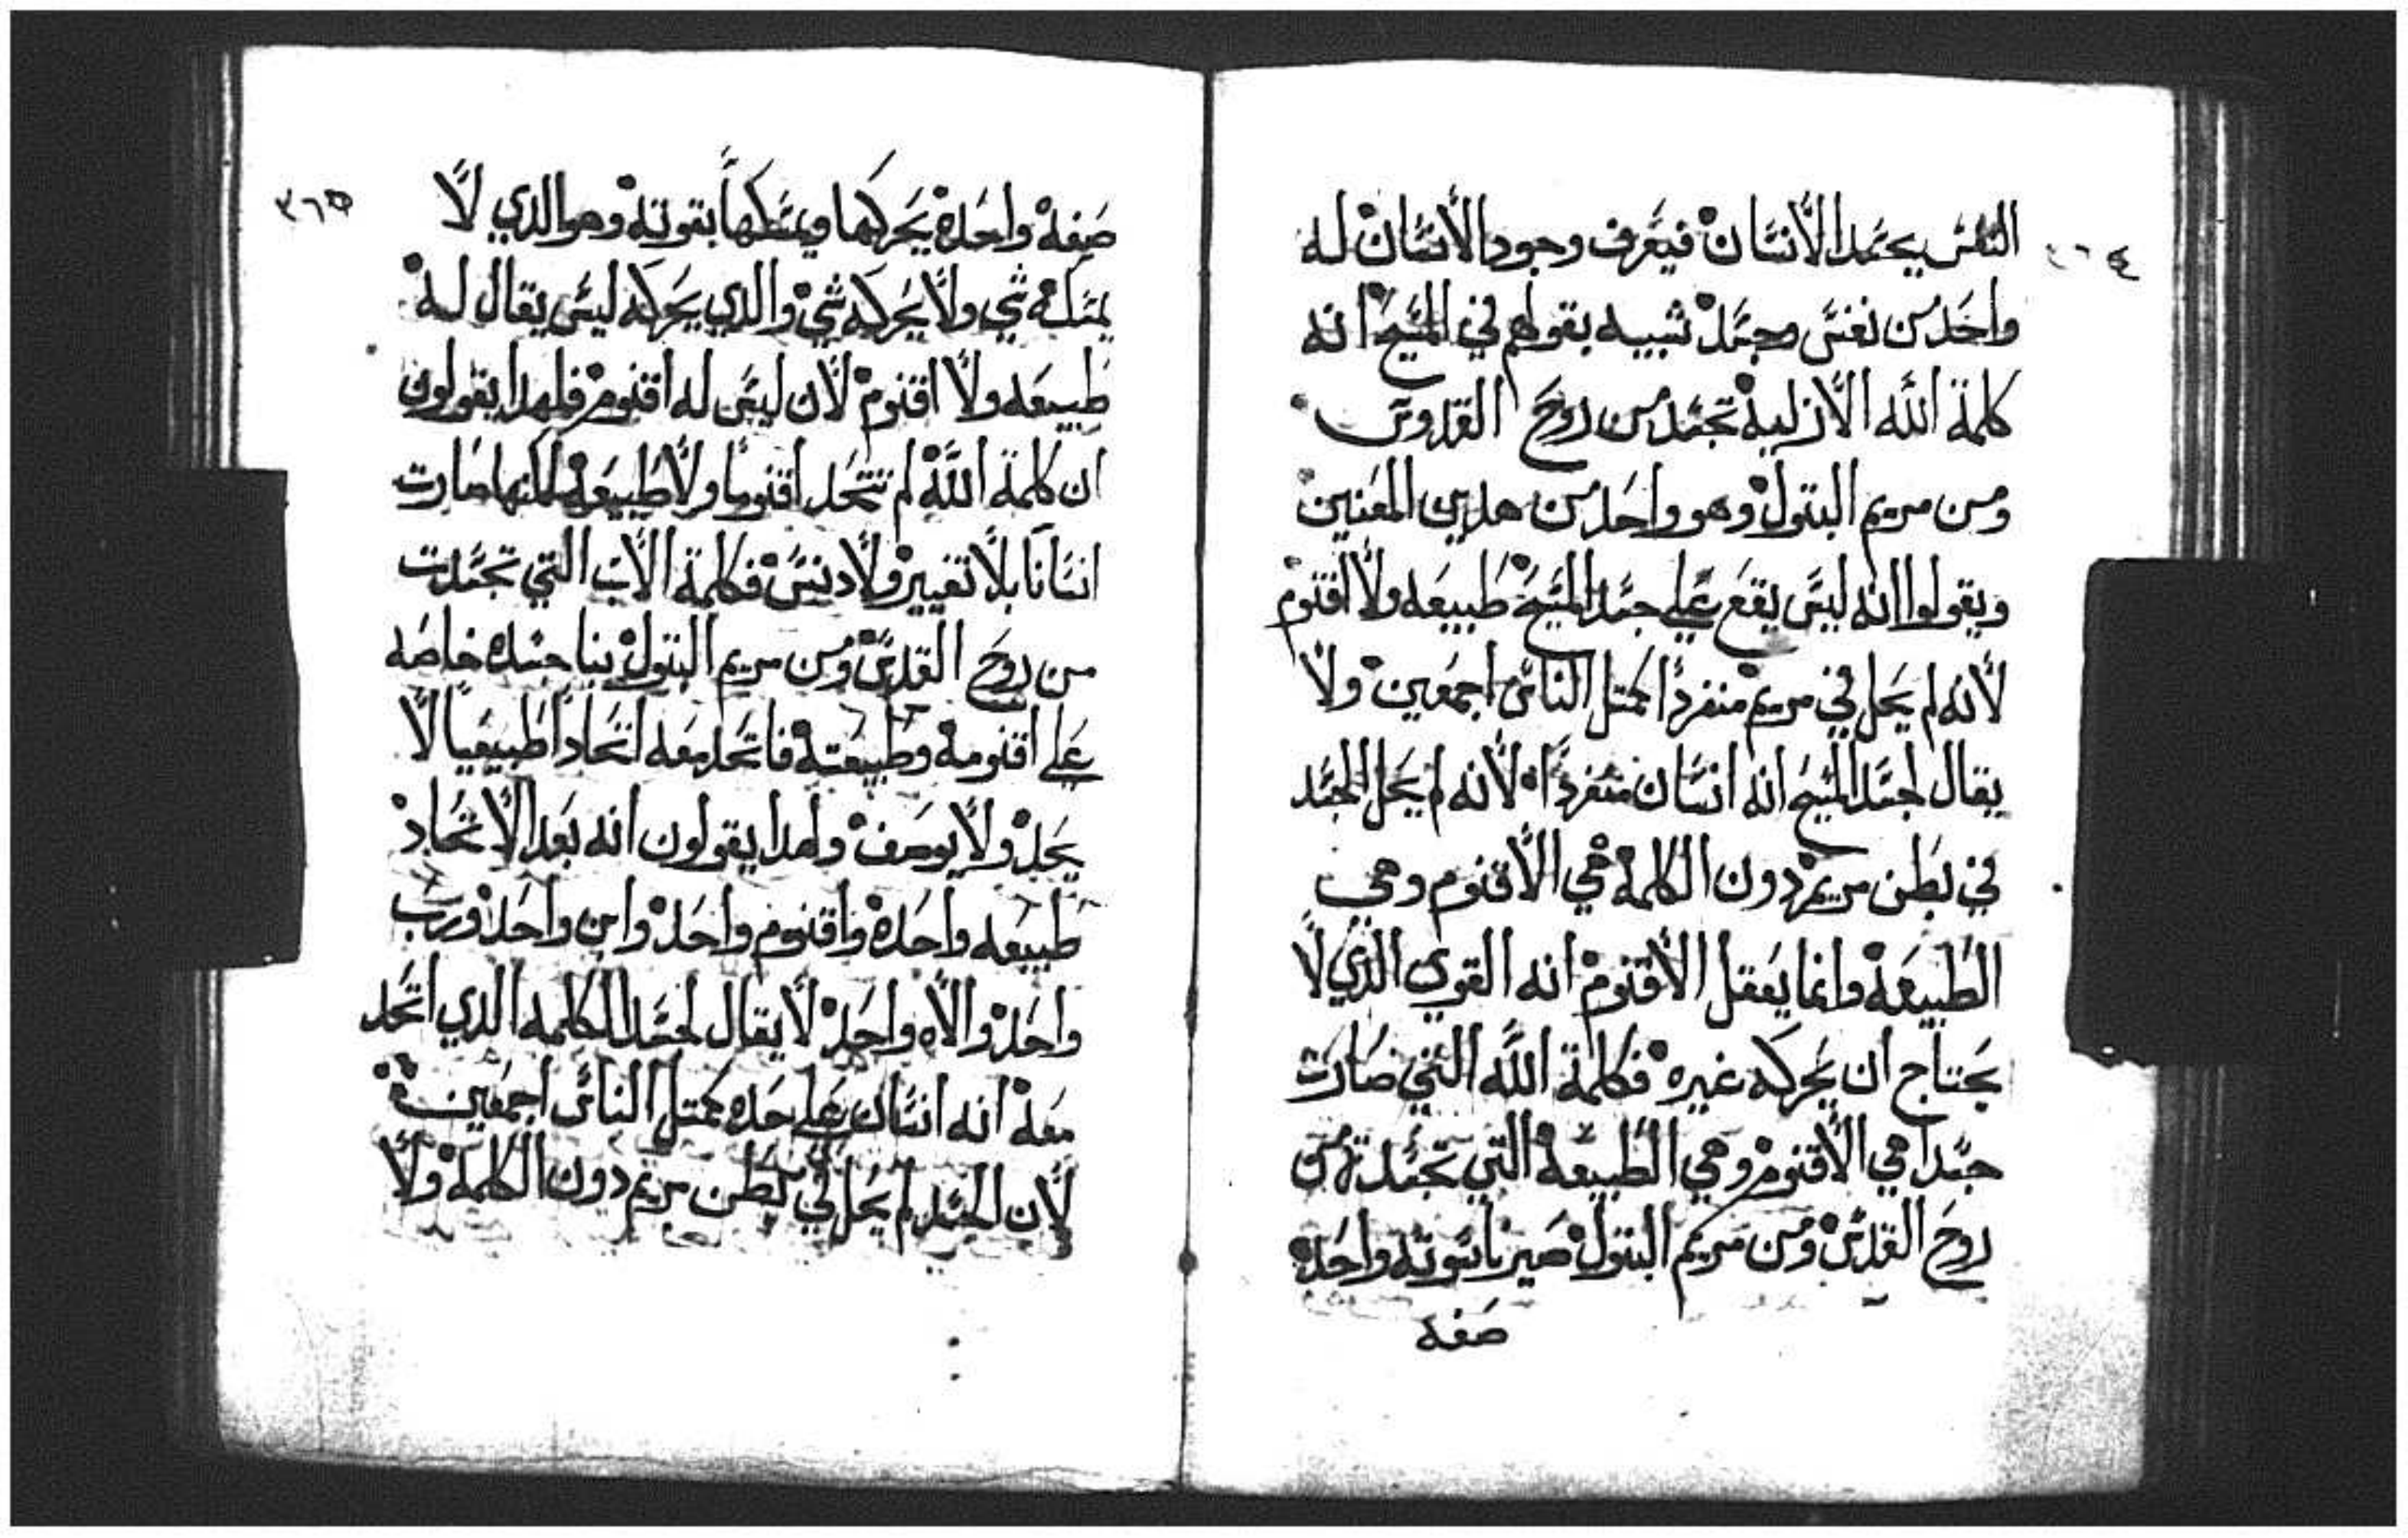 ٣٦٤
النفس بجسد الانسان فيعرف وجود الانسان له
واحد من نفس وجسد شبيه بقولهم في المسيح انه
كلمة الله الازلية تجسد من روح القدوس
ومن مريم البتول وهو واحد من هدين المعنين
ويقولوا انه ليس يقع علي جسد المسيح طبيعه ولا اقنوم
لانه لم يحل في مريم منفرداً كمتل الناس اجمعين ولا
يقال لجسد المسيح انه انسان منفرداً لانه لم يحل الجسد
في بطن مريم دون الكلمة هي الاقنوم وهي
الطبيعة وانما يعقل الاقنوم انه القوي الذي لا
يحتاج ان يحركه غيره فكلمة الله التي صارت
جسدا هي الاقنوم وهي الطبيعة التي تجسدة من
روح القدس ومن مريم البتول صير ناسوته واحده
صفه
٣٦٥
صفة واحدة يحركها ويمسكها بقوته وهو الدي لا
يمسكه شي ولا يحركه شي والدي يحركه ليس يقال له
طبيعه ولا اقنوم لان ليس له اقنوم فلهدا يقولون
ان كلمة الله لم تتحد اقنوما ولا طبيعة لكنها صارت
انسانا بلا تغيير ولا دنس فكلمة الاب التي تجسدت
من روح القدس ومن مريم البتول بنا جسده خاصه
علي اقنومه وطبيعته فاتحد معه اتحاداً طبيعياً لا
يحد ولا يوصف ولهدا يقولون انه بعد الاتحاد
طبيعه واحدة واقنوم واحد وابن واحد ورب
واحد والاه واحد لا يقال لجسد الكلمه الدي اتحد
معه انه انسان علي حده كمتل الناس اجمعين
لان الجسد لم يحل في بطن مريم دون الكلمة ولا